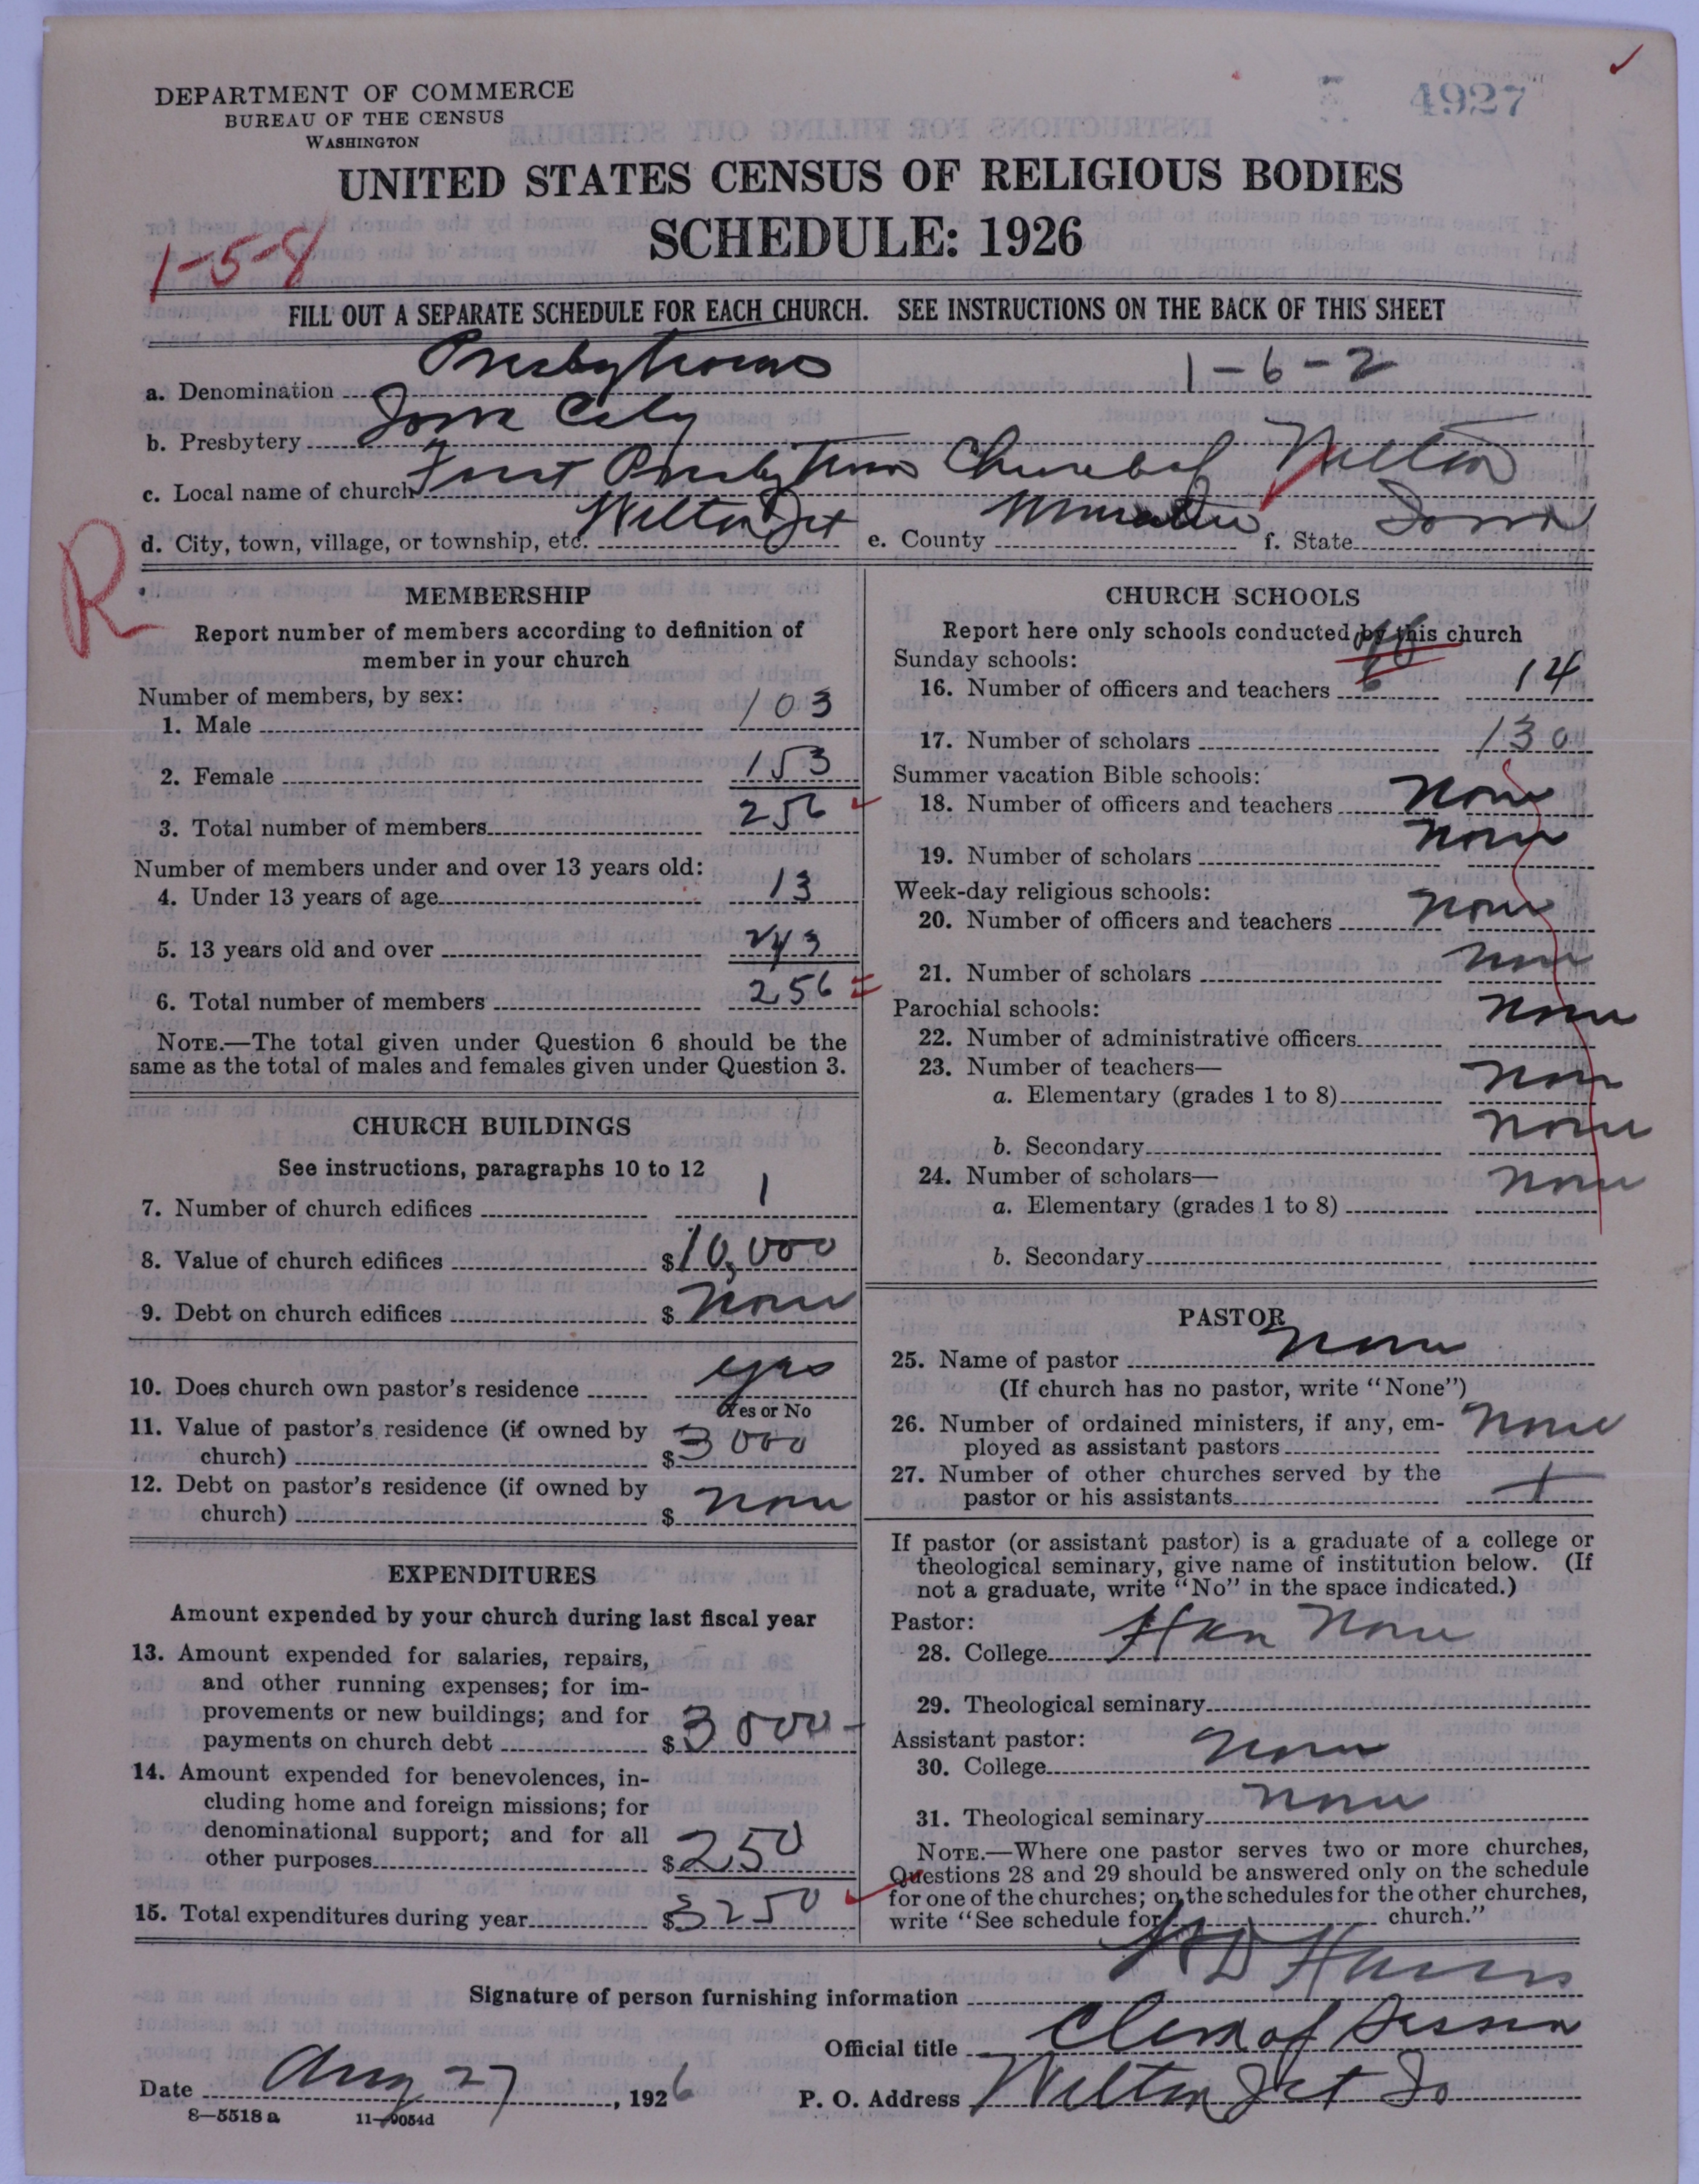 4927
DEPARTMENT OF COMMERCE
BUREAU OF THE CENSUS
WASHINGTON
UNITED STATES CENSUS OF RELIGIOUS BODIES
SCHEDULE: 1926
1-5-8
FILL OUT A SEPARATE SCHEDULE FOR EACH CHURCH. SEE INSTRUCTIONS ON THE BACK OF THIS SHEET
a. Denomination Presbyterian 1-6-2
b. Presbytery Iowa City
c. Local name of church First Presbyterian Church of Wilton
d. City, town, village, or township, etc. Wilton Jct e. County Muscatine f. State Iowa
R
MEMBERSHIP
Report number of members according to definition of
member in your church
Number of members, by sex:
1. Male 103
2. Female 153
3. Total number of members 256
Number of members under and over 13 years old:
4. Under 13 years of age 13
5. 13 years old and over 243
6. Total number of members 256
NOTE.—The total given under Question 6 should be the
same as the total of males and females given under Question 3.
CHURCH BUILDINGS
See instructions, paragraphs 10 to 12
7. Number of church edifices 1
8. Value of church edifices $10,000
9. Debt on church edifices $ None
10. Does church own pastor's residence yes
Yes or No
11. Value of pastor's residence (if owned by
church) $3000
12. Debt on pastor's residence (if owned by
church) $ None
EXPENDITURES
Amount expended by your church during last fiscal year
13. Amount expended for salaries, repairs,
and other running expenses; for im-
provements or new buildings; and for
payments on church debt $3000-
14. Amount expended for benevolences, in-
cluding home and foreign missions; for
denominational support; and for all
other purposes $250
15. Total expenditures during year $3250
CHURCH SCHOOLS
Report here only schools conducted by this church
Sunday schools:
16. Number of officers and teachers 14
17. Number of scholars 130
Summer vacation Bible schools:
18. Number of officers and teachers None
19. Number of scholars None
Week-day religious schools:
20. Number of officers and teachers None
21. Number of scholars None
Parochial schools:
22. Number of administrative officers None
23. Number of teachers—
a. Elementary (grades 1 to 8) None
b. Secondary None
24. Number of scholars—
a. Elementary (grades 1 to 8) None
b. Secondary
PASTOR
25. Name of pastor None
(If church has no pastor, write "None")
26. Number of ordained ministers, if any, em-
ployed as assistant pastors None
27. Number of other churches served by the
pastor or his assistants
If pastor (or assistant pastor) is a graduate of a college or
theological seminary, give name of institution below. (If
not a graduate, write "No" in the space indicated.)
Pastor:
28. College None
29. Theological seminary
Assistant pastor:
30. College None
31. Theological seminary None
NOTE.—Where one pastor serves two or more churches,
Questions 28 and 29 should be answered only on the schedule
for one of the churches; on the schedules for the other churches,
write "See schedule for church."
Signature of person furnishing information
Official title Clerk of Session
Date Aug 27, 1926 P. O. Address Wilton Jct Io
8—5518 a 11—9054d